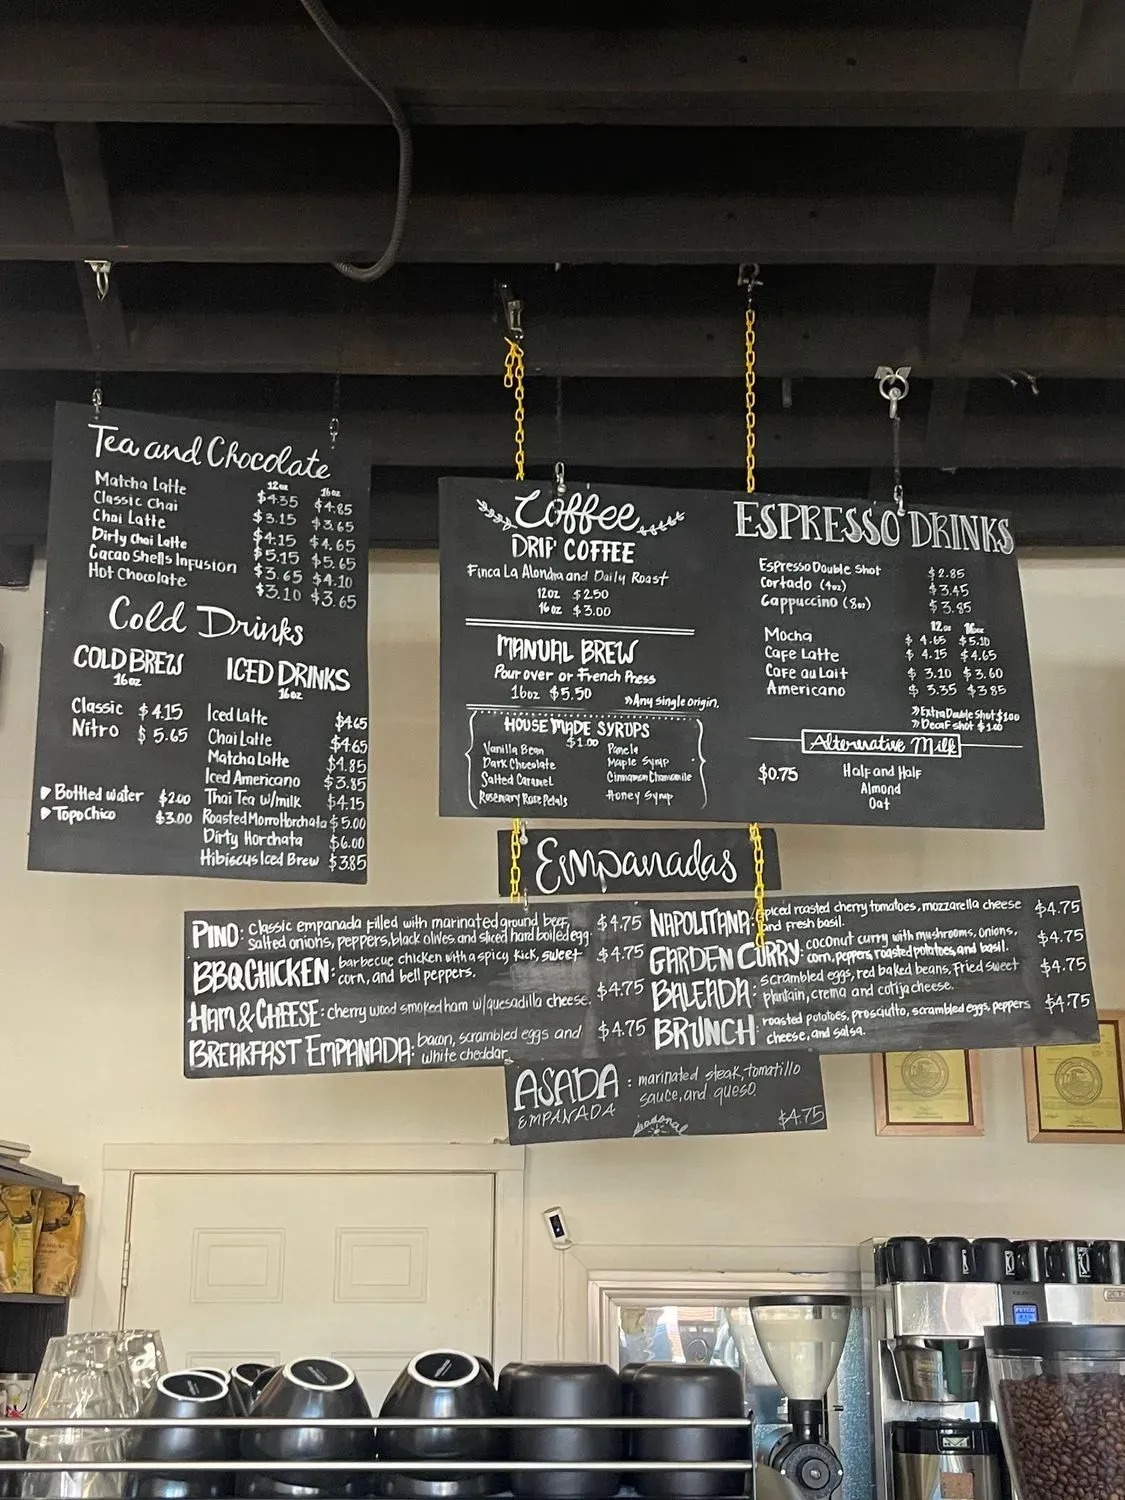 Tea and Chocolate
12oz 16oz
Matcha Latte $4.35 $4.85
Classic Chai $3.15 $3.65
Chai Latte $4.15 $4.65
Dirty Chai Latte $5.15 $5.65
Cacao Shells Infusion $3.65 $4.10
Hot Chocolate $3.10 $3.65
Cold Drinks
COLD BREW
16oz
Classic $4.15
Nitro $5.65
Bottled water $2.00
Topo Chico $3.00
ICED DRINKS
16oz
Iced Latte $4.65
Chai Latte $4.65
Matcha Latte $4.85
Iced Americano $3.85
Thai Tea w/milk $4.15
Roasted Morro Horchata $5.00
Dirty Horchata $6.00
Hibiscus Iced Brew $3.85
Coffee
DRIP COFFEE
Finca La Alondra and Daily Roast
12oz $2.50
16oz $3.00
MANUAL BREW
Pour over or French Press
16oz $5.50
»Any single origin.
HOUSE MADE SYRUPS
$1.00
Vanilla Bean Panela
Dark Chocolate Maple Syrup
Salted Caramel Cinnamon Chamomile
Rosemary Rose Petals Honey Syrup
ESPRESSO DRINKS
Espresso Double Shot $2.85
Cortado (4oz) $3.45
Cappuccino (8oz) $3.85
12oz 16oz
Mocha $4.65 $5.10
Cafe Latte $4.15 $4.65
Cafe au Lait $3.10 $3.60
Americano $3.35 $3.85
»Extra Double Shot $1.00
»Decaf shot $1.00
Alternative Milk
$0.75
Half and Half
Almond
Oat
Empanadas
PINO: classic empanada filled with marinated ground beef, $4.75
salted onions, peppers, black olives and sliced hard boiled egg.
BBQ CHICKEN: barbecue chicken with a spicy kick, sweet $4.75
corn, and bell peppers.
HAM & CHEESE: cherry wood smoked ham w/quesadilla cheese. $4.75
BREAKFAST EMPANADA: bacon, scrambled eggs and $4.75
white cheddar
NAPOLITANA: spiced roasted cherry tomatoes, mozzarella cheese $4.75
and fresh basil.
GARDEN CURRY: coconut curry with mushrooms, onions, $4.75
corn, peppers, roasted potatoes, and basil.
BALEADA: scrambled eggs, red baked beans, fried sweet $4.75
plantain, crema and cotija cheese.
BRUNCH: roasted potatoes, prosciutto, scrambled eggs, peppers $4.75
cheese, and salsa.
ASADA
EMPANADA
: marinated steak, tomatillo
sauce, and queso.
seasonal
$4.75
FETCO